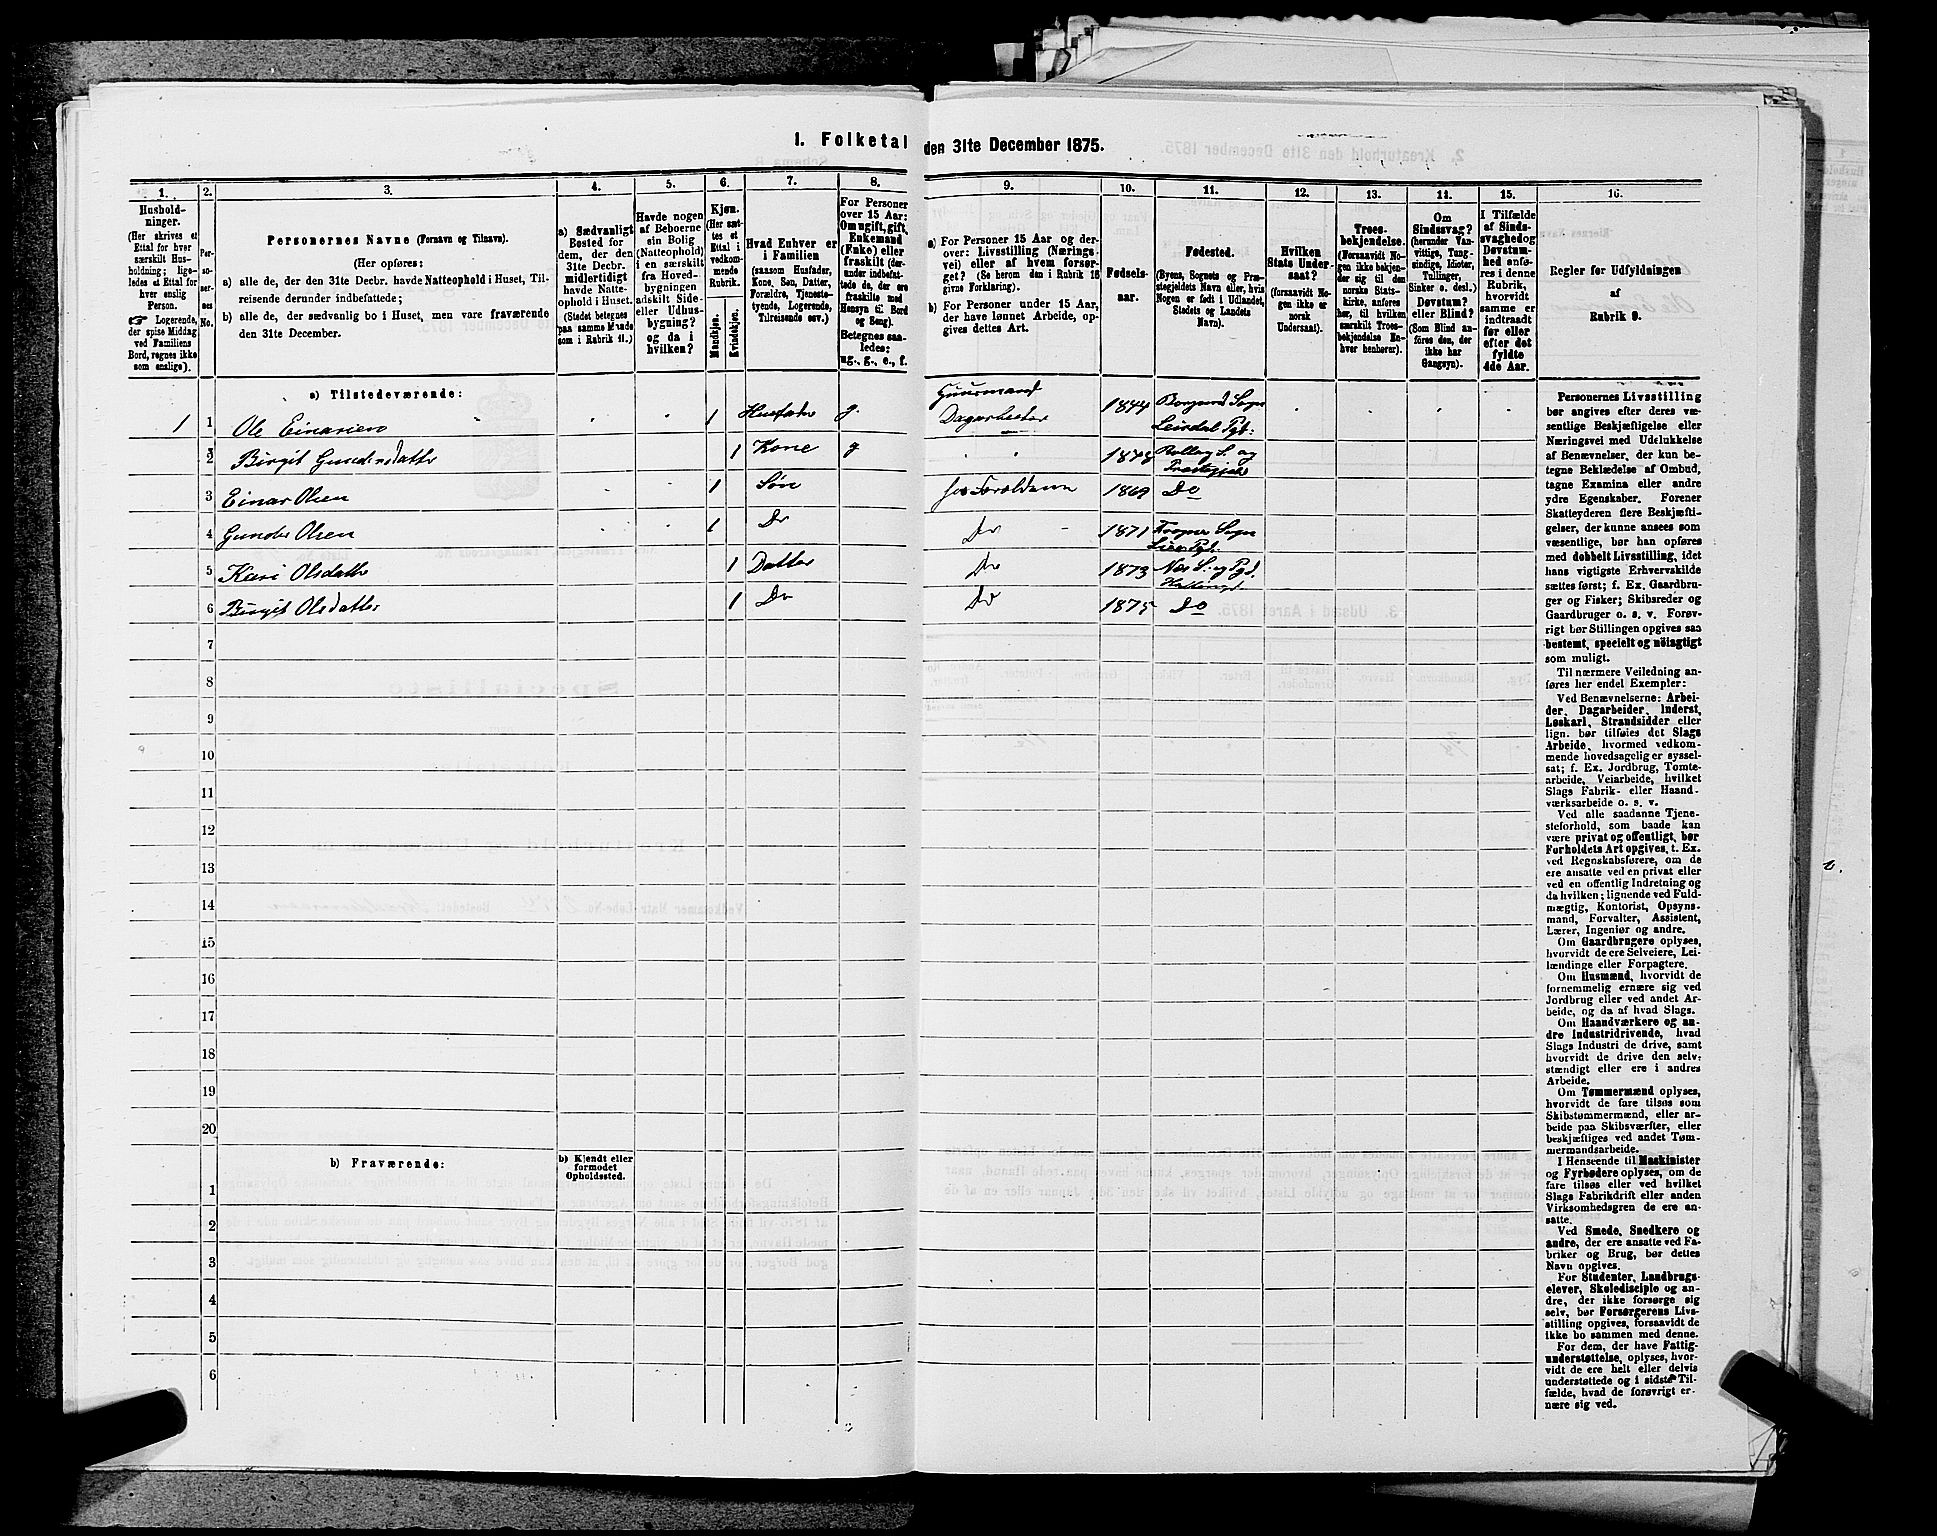 1. Folketal den 31te December 1875.
1.
2.
3.
4.
5.
6.
7.
8.
9.
10.
11.
12.
13.
14.
15.
16.
Hushold-
ninger.
(Her skrives et
Ettal for hver
særskilt Hus-
holdning; lige-
ledes et Ettal for
hver enslig
Person.
Logerende,
der spise Middag
ved Familiens
Bord, regnes ikke
som enslige).
Per-
so-
ner-
nes
No.
Personernes Navne (Fornavn og Tilnavn).
(Her opføres:
a) alle de, der den 31te Decbr. havde Natteophold i Huset, Til-
reisende derunder indbefattede;
b) alle de, der sædvanlig bo i Huset, men vare fraværende
den 31te December.
a) Sædvanligt
Bosted for
dem, der den
31te Decbr.
midlertidigt
havde Natte-
ophold i Huset.
(Stedet betegnes
paa samme Maade
som i Rubrik 11.)
Havde nogen
af Beboerne
sin Bolig
(Natteophold)
i en særskilt
fra Hoved-
bygningen
adskilt Side-
eller Udhus-
bygning?
og da i
hvilken?
Kjøn.
(Her sæt-
tes et
Ettal i
vedkom-
mende
Rubrik.
Mandkjøn.
Kvindekjøn.
Hvad Enhver er
i Familien
(saasom Husfader,
Kone, Søn, Datter,
Forældre, Tjeneste-
tyende, Logerende,
Tilreisende osv.)
For Personer
over 15 Aar:
Om ugift, gift,
Enkemand
(Enke) eller
fraskilt (der-
under indbefat-
tede de, der ere
fraskilte med
Hensyn til Bord
og Seng).
Betegnes saa-
ledes:
ug., g., e., f.
a) For Personer 15 Aar og der-
over: Livsstilling (Nærings-
vei) eller af hvem forsør-
get? (Se herom den i Rubrik 16
givne Forklaring).
b) For Personer under 15 Aar,
der have lønnet Arbeide, op-
gives dettes Art.
Fødsels-
aar.
Fødested.
(Byens, Sognets og Præ-
stegjeldets Navn eller, hvis
Nogen er født i Udlandet,
Stedets og Landets
Navn).
Hvilken
Stats Under-
saat?
(forsaavidt No-
gen ikke er
norsk
Undersaat).
Troes-
bekjendelse.
(Forsaavidt No-
gen ikke bekjen-
der sig til den
norske Stats-
kirke, anføres
her, til hvilken
særskilt Troes-
bekjendelse En-
hver henhører).
Om
Sindssvag?
(herunder Van-
vittige, Tung-
sindige, Idioter,
Tullinger,
Sinker o. desl.)
Døvstum?
eller Blind?
(Som Blind an-
føres den, der
ikke har
Gangsyn).
I Tilfælde
af Sinds-
svaghed og
Døvstum-
hed anfø-
res i denne
Rubrik,
hvorvidt
samme er
indtraadt
før eller
efter det
fyldte
4de Aar.
Regler for Udfyldningen
af
Rubrik 9.
a) Tilstedeværende:
1 1 Ole Einarsen 1 Husfader g. Dagarbeider 1844 Borgund Sogn
Leirdal Pgt:
2 Birgit Gundersdatter 1 Kone g Rollag S. og
Præstegjeld
3 Einar Olsen 1 Søn Forældrene 1869 Do
4 Gunder Olsen 1 Do Do 1871 Sogn
Lier Pgt.
5 Kari Olsdatter 1 Datter Do 1873 Næs S. og Pgd.
Hallingd.
6 Birgit Olsdatter 1 Do Do 1875 Do
7
8
9
10
11
12
13
14
15
16
17
18
19
20
b) Fraværende:
b) Kjendt eller
formodet
Opholdssted.
1
2
3
4
5
6
Personernes Livsstilling
bør angives efter deres væ-
sentlige Beskjæftigelse eller
Næringsvei med Udelukkelse
af Benævnelser, der kun be-
tegne Beklædelse af Ombud,
tagne Examina eller andre
ydre Egenskaber. Forener
Skatteyderen flere Beskjæfti-
gelser, der kunne ansees som
væsentlige, bør han opføres
med dobbelt Livsstilling, idet
hans vigtigste Erhvervskilde
sættes først; f. Ex. Gaardbru-
ger og Fisker; Skibsreder og
Gaardbruger o. s. v. Forøv-
rigt bør Stillingen opgives saa
bestemt, specielt og nöiagtigt
som muligt.
Til nærmere Veiledning an-
føres her endel Exempler:
Ved Benævnelserne: Arbei-
der, Dagarbeider, Inderst,
Løskarl, Strandsidder eller
lign. bør tilføies det Slags
Arbeide, hvormed vedkom-
mende hovedsagelig er syssel-
sat; f. Ex. Jordbrug, Tomte-
arbeide, Veiarbeide, hvilket
Slags Fabrik- eller Haand-
værksarbeide o. s. v.
Ved alle saadanne Tjene-
steforhold, som baade kan
være privat og offentligt, bør
Forholdets Art opgives, f. Ex.
ved Regnskabsførere, om de
ere ansatte ved en privat eller
ved en offentlig Indretning og
da hvilken; lignende ved Fuld-
mægtig, Kontorist, Opsyns-
mand, Forvalter, Assistent,
Lærer, Ingeniør og andre.
Om Gaardbrugere oplyses,
hvorvidt de ere Selveiere, Lei-
lændinge eller Forpagtere.
Om Husmænd, hvorvidt de
fornemmelig ernære sig ved
Jordbrug eller ved andet Ar-
beide, og da af hvad Slags.
Om Haandværkere og an-
dre Industridrivende, hvad
Slags Industri de drive, samt
hvorvidt de drive den selv-
stændigt eller ere i andres
Arbeide.
Om Tømmermænd oplyses,
hvorvidt de fare tilsøs som
Skibstømmermænd, eller ar-
beide paa Skibsværfter, eller
beskjæftiges ved andet Tøm-
mermandsarbeide.
I Henseende til Maskinister
og Fyrbødere oplyses, om de
fare tilsøs eller ved hvilket
Slags Fabrikdrift eller anden
Virksomhedsgren de ere an-
satte.
Ved Smede, Snedkere og
andre, der ere ansatte ved Fa-
briker og Brug, bør dettes
Navn opgives.
For Studenter, Landbrugs-
elever, Skoledisciple og an-
dre, der ikke forsørge sig
selv, bør Forsørgerens Livs-
stilling opgives, forsaavidt de
ikke bo sammen med denne.
For dem, der have Fattig-
understøttelse, oplyses, hvor-
vidt de ere helt eller delvis
understøttede og i sidste Til-
fælde, hvad de forøvrigt er-
nære sig ved.